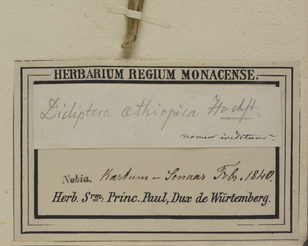 HERBARIUM REGIUM MONACENSE.
Dicliptera æthiopica Hochst.
nomen ineditum.
Nubia. Kartum – Senaar Febr. 1840.
Herb. Smi. Princ. Paul, Dux de Würtemberg.